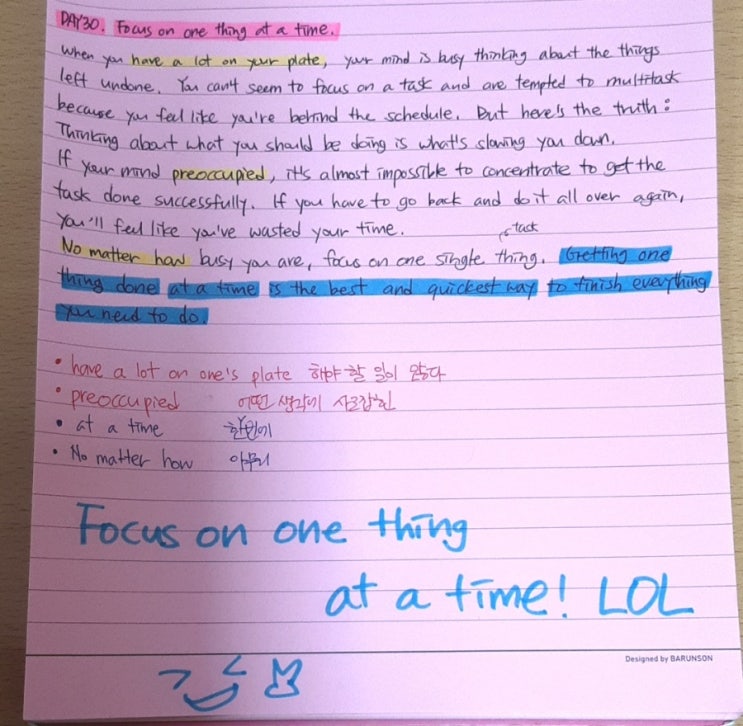 DAY30. Focus on one thing at a time.
When you have a lot on your plate, your mind is busy thinking about the things
left undone. You can't seem to focus on a task and are tempted to multitask
because you feel like you're behind the schedule. But here's the truth:
Thinking about what you should be doing is what's slowing you down.
If your mind preoccupied, it's almost impossible to concentrate to get the
task done successfully. If you have to go back and do it all over again,
You'll feel like you've wasted your time.
task
No matter how busy you are, focus on one single thing. Getting one
thing done at a time is the best and quickest way to finish everything
you need to do.
• have a lot on one's plate 해야 할 일이 많다
• preoccupied 어떤 생각에 사로잡힌
• at a time 한번에
• No matter how 아무리
Focus on one thing
at a time! LOL
Designed by BARUNSON